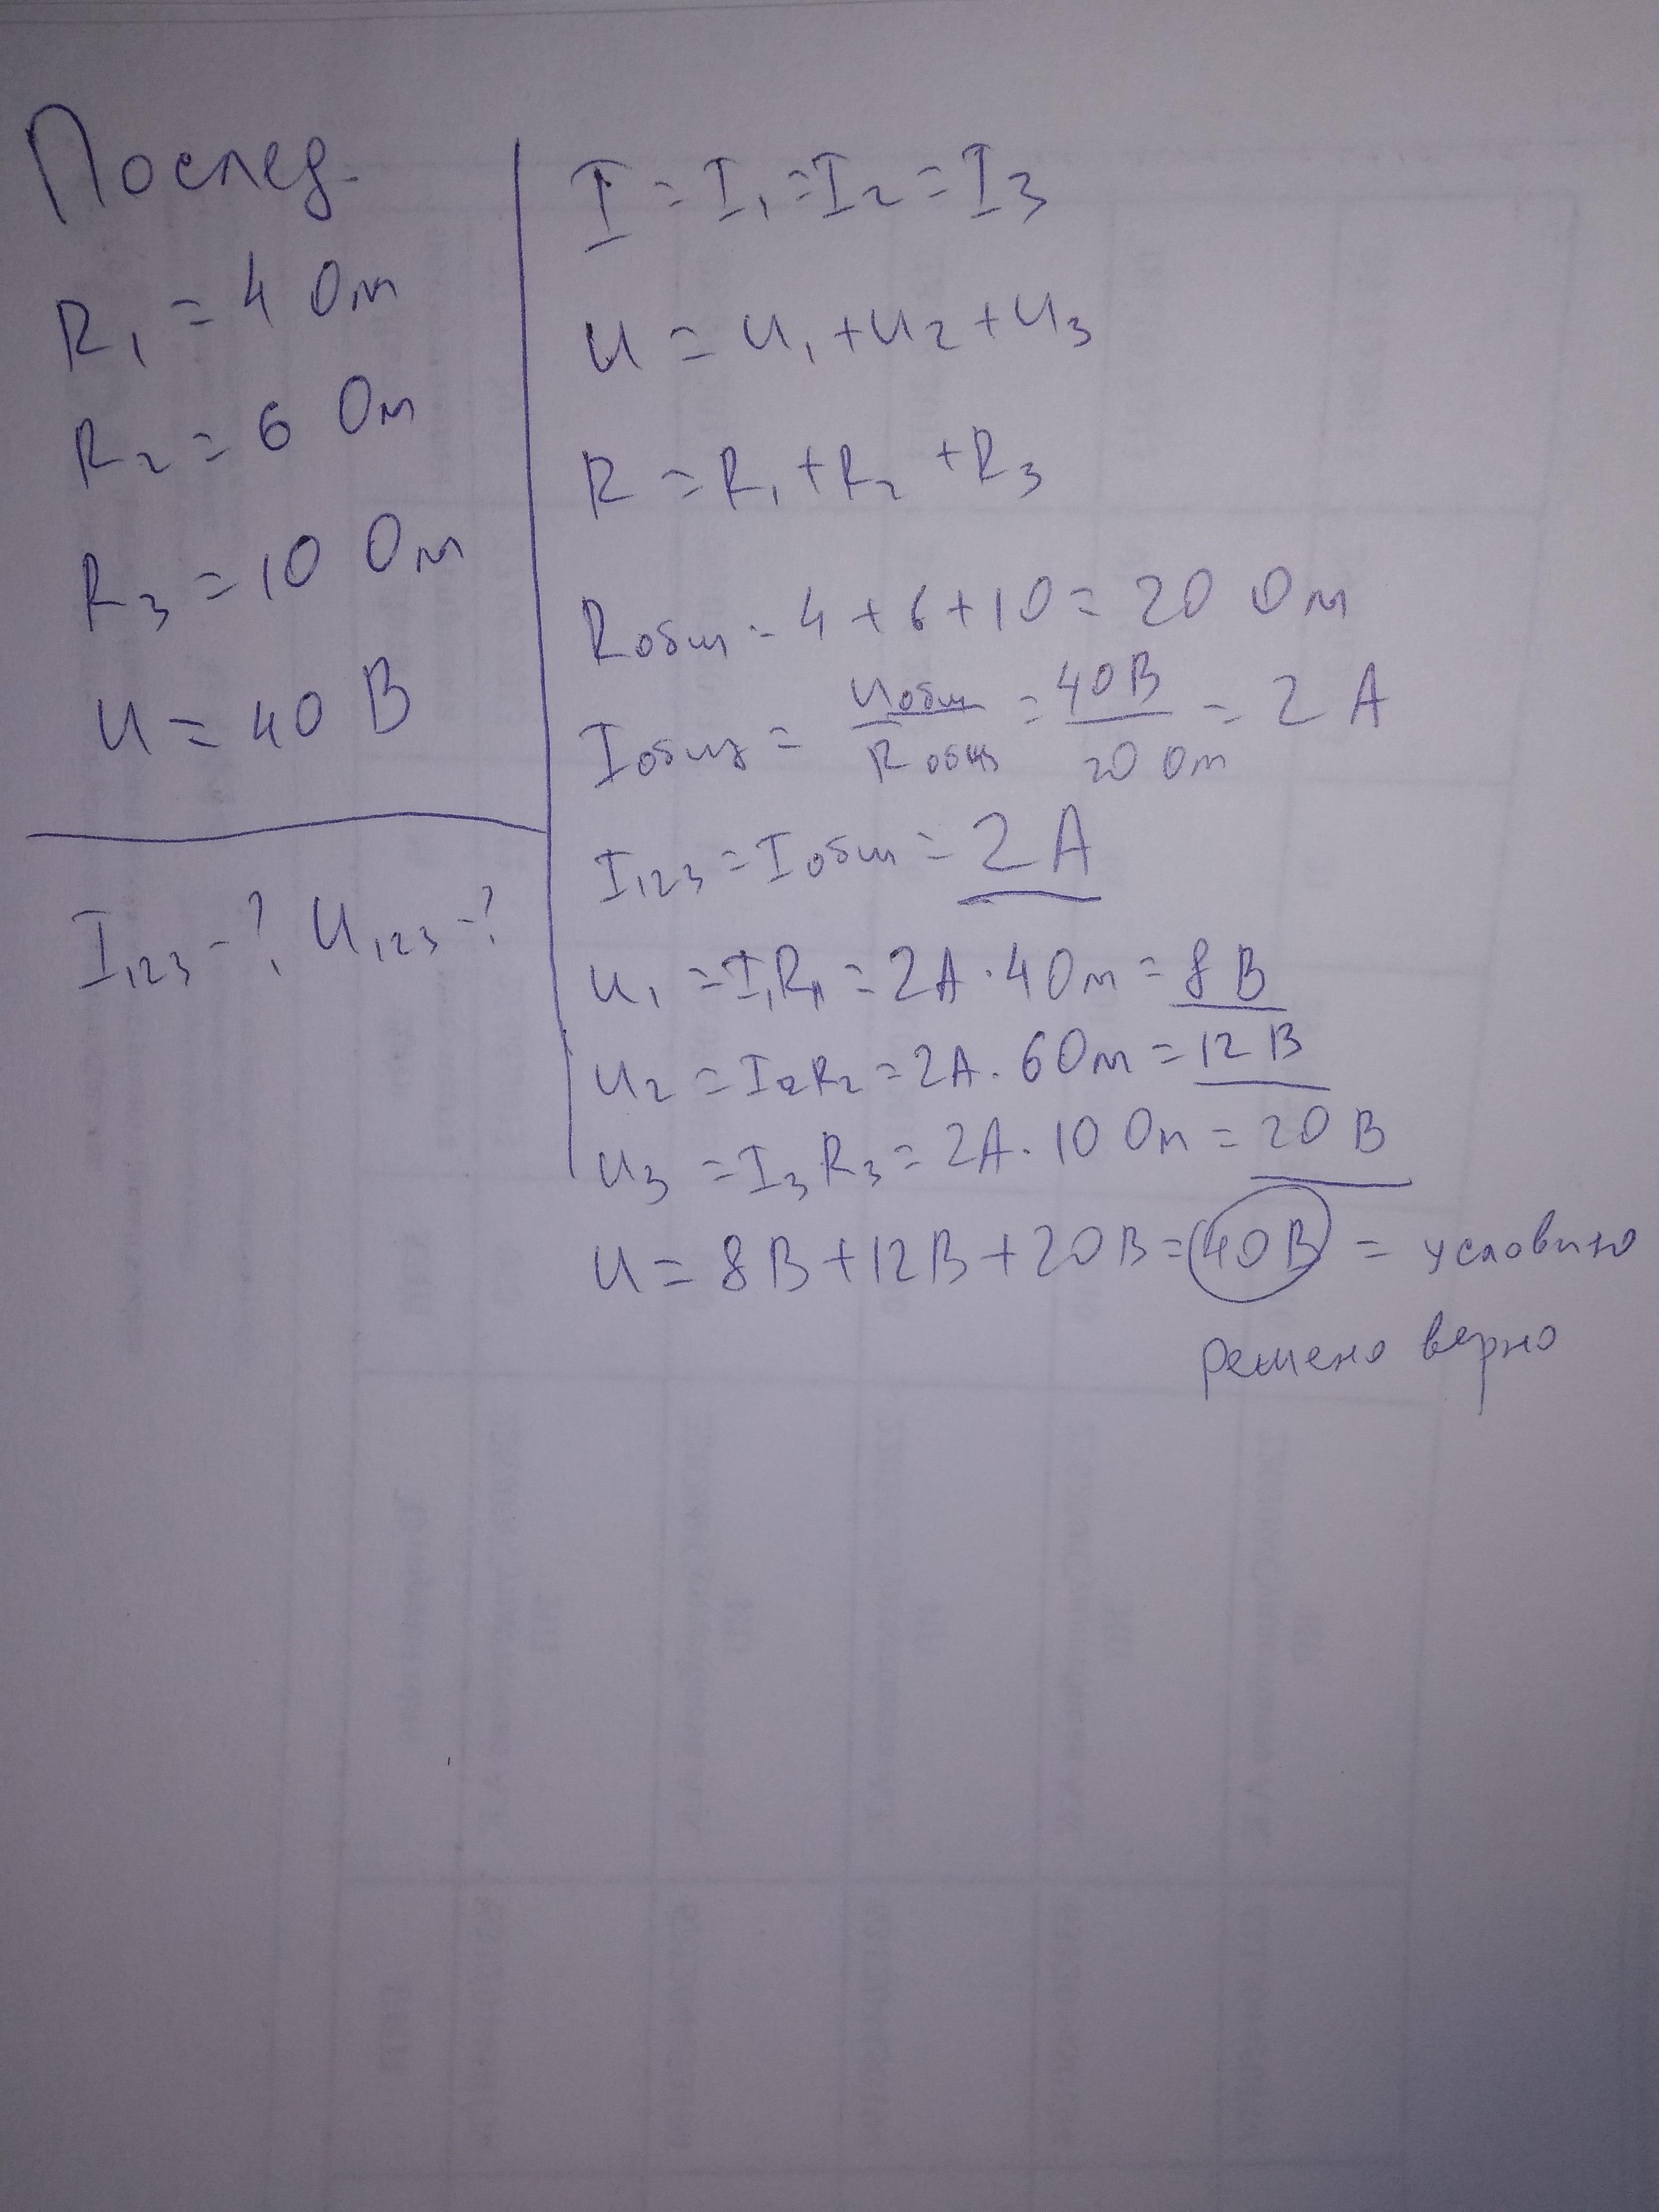 Послед.
R₁ = 4 Ом
R₂ = 6 Ом
R₃ = 10 Ом
U = 40 В
I₁₂₃ - ?, U₁₂₃ - ?
I = I₁ = I₂ = I₃
U = U₁ + U₂ + U₃
R = R₁ + R₂ + R₃
Rобщ = 4 + 6 + 10 = 20 Ом
Iобщ = Uобщ / Rобщ = 40 В / 20 Ом = 2 А
I₁₂₃ = Iобщ = 2 А
U₁ = I₁R₁ = 2А · 4 Ом = 8 В
U₂ = I₂R₂ = 2А · 6 Ом = 12 В
U₃ = I₃R₃ = 2А · 10 Ом = 20 В
U = 8В + 12В + 20В = 40В = условию
решено верно